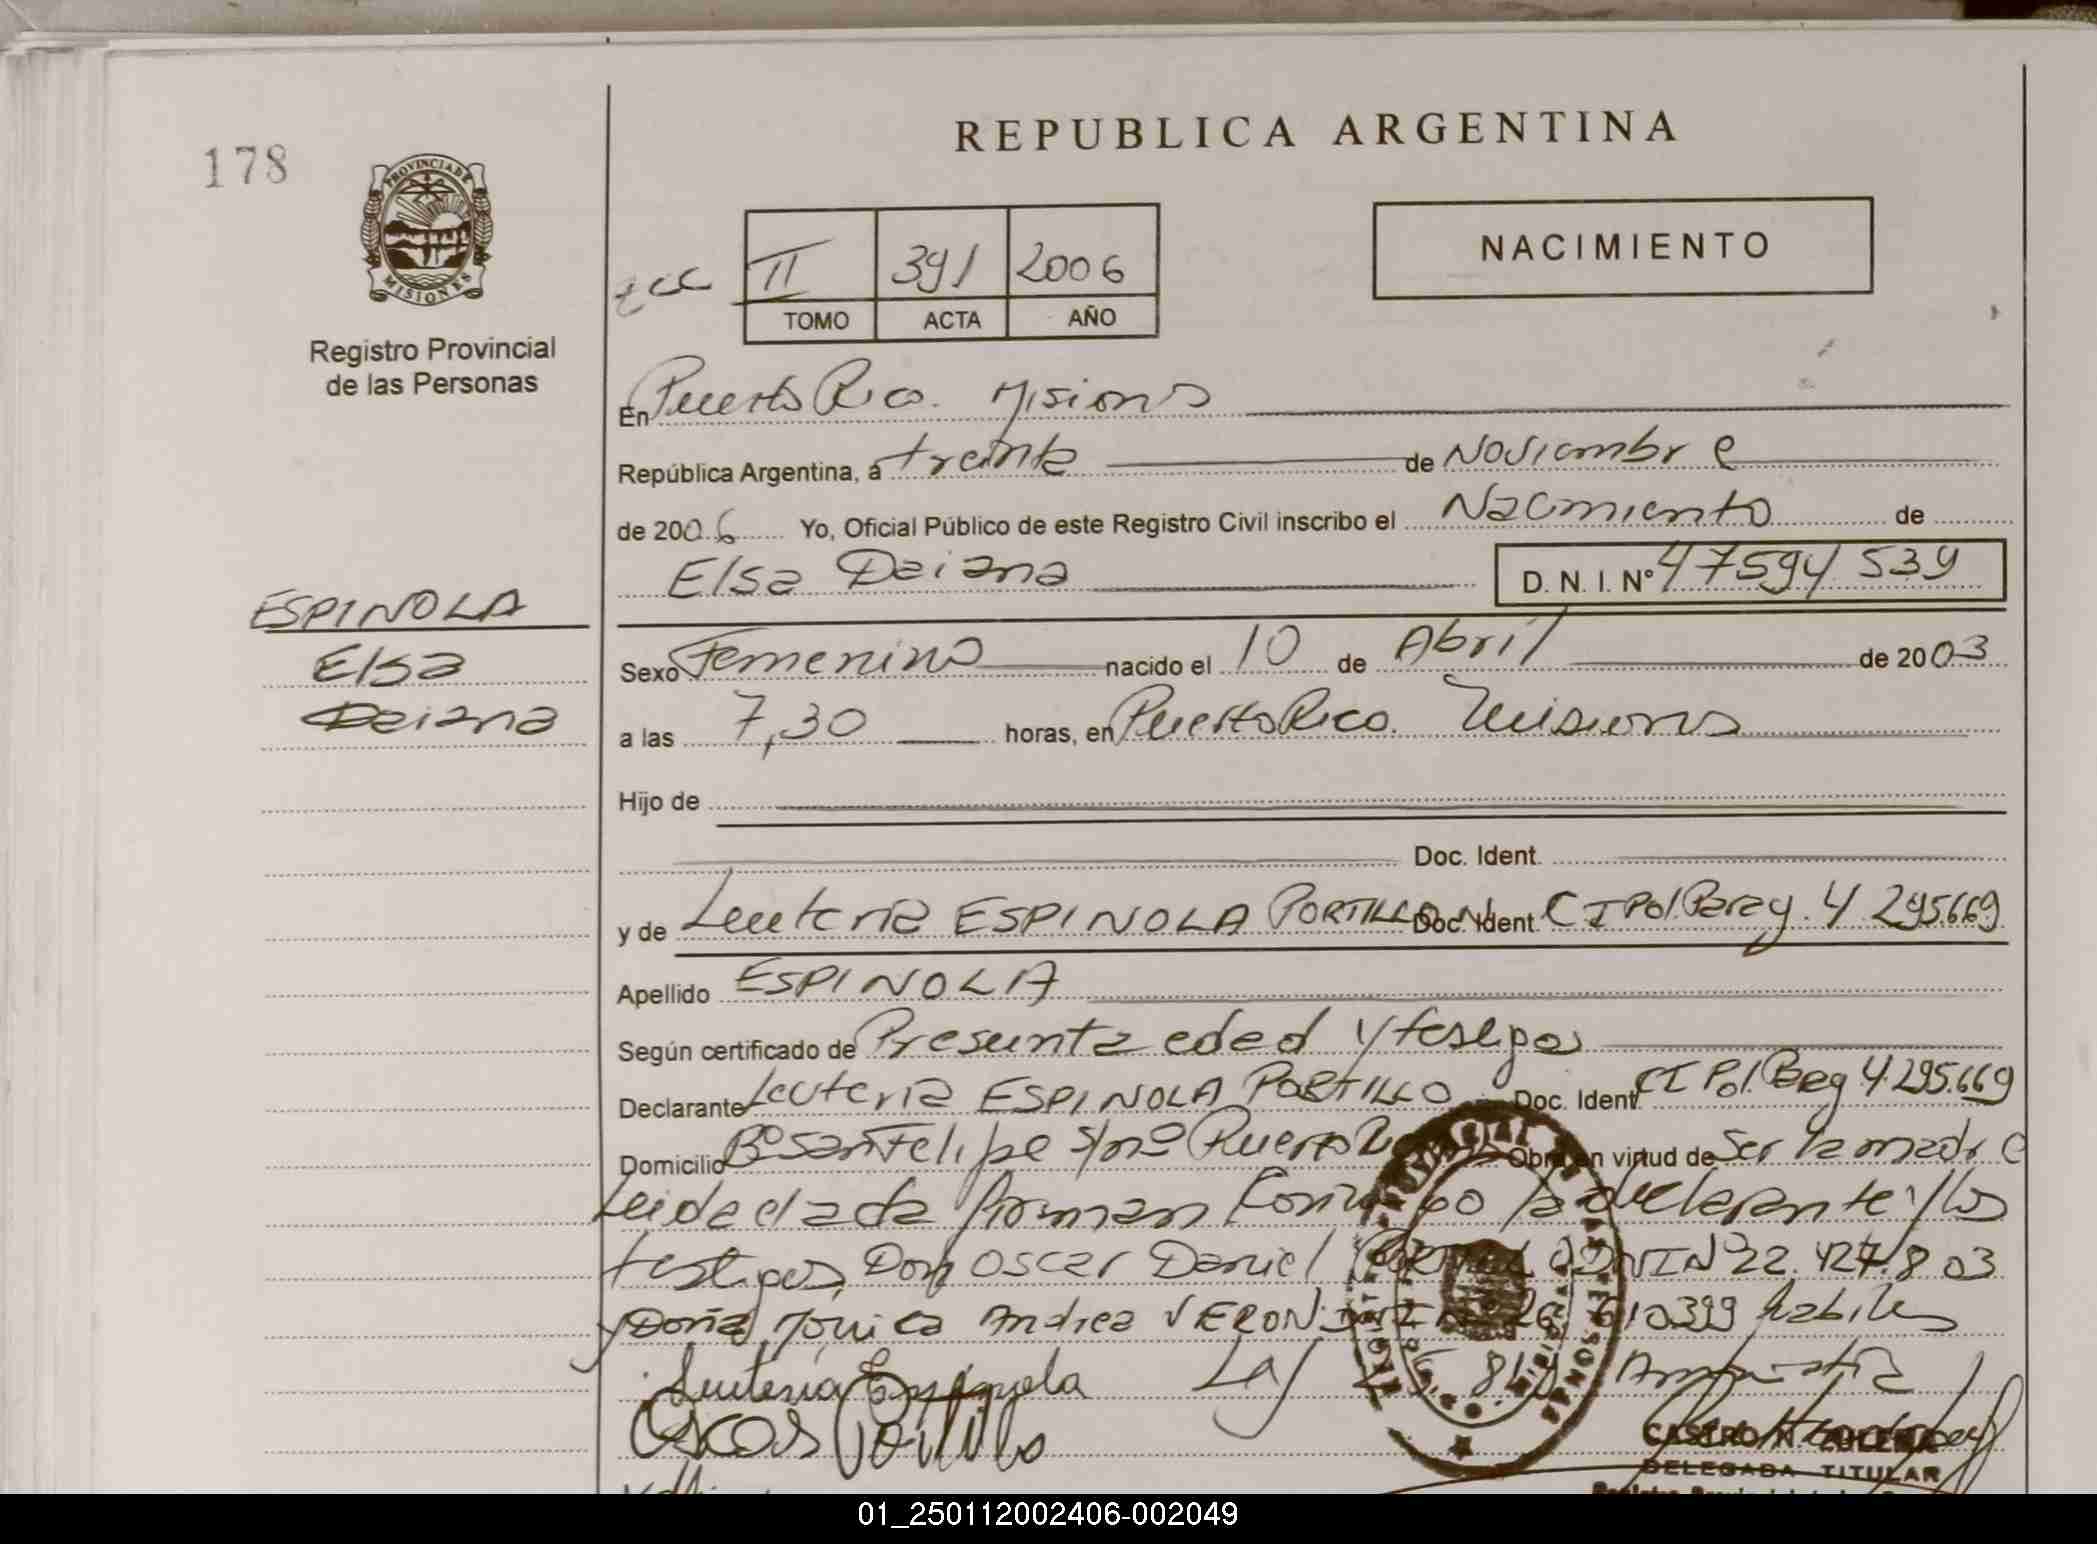 178
PROVINCIA DE
MISIONES
Registro Provincial
de las Personas
REPUBLICA ARGENTINA
II 391 2006
TOMO ACTA AÑO
NACIMIENTO
En Puerto Rico. Misiones
República Argentina, á treinta de Noviembre
de 2006 Yo, Oficial Público de este Registro Civil inscribo el Nacimiento de
Elsa Daiana D. N. I. Nº 47594539
ESPINOLA
Elsa
Daiana
Sexo Femenino nacido el 10 de Abril de 2003
a las 7,30 horas, en Puerto Rico. Misiones
Hijo de
Doc. Ident.
y de Leuteria ESPINOLA PORTILLO Doc. Ident. CI Pol. Paray. 4.295.669
Apellido ESPINOLA
Según certificado de Presunta edad y testigos
Declarante Leuteria ESPINOLA PORTILLO Doc. Ident. CI Pol. Parg 4.295.669
Domicilio Bº San Felipe s/nº Puerto Obra en virtud de Ser la madre
Leida el acta firman conmigo la declarante y los
testigos, Don Oscar Daniel DNI Nº 22.427.803
y Doña Mónica Andrea VERON 610399 habiles
Leuteria Espinola
Portillo
CASTRO N.
DELEGADA TITULAR
01_250112002406-002049